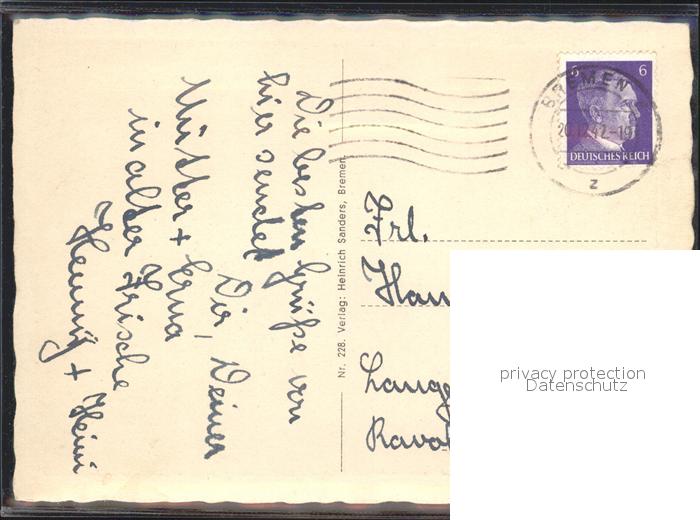 Die besten Grüße von
hier sendet
Dir, Deiner
Mutter + Erna
in alter Frische
Henny + Heini
Nr. 228. Verlag: Heinrich Sanders, Bremen.
BREMEN
42.-19
z
6 6
DEUTSCHES REICH
Frl.
Han
Lange
privacy protection
Datenschutz